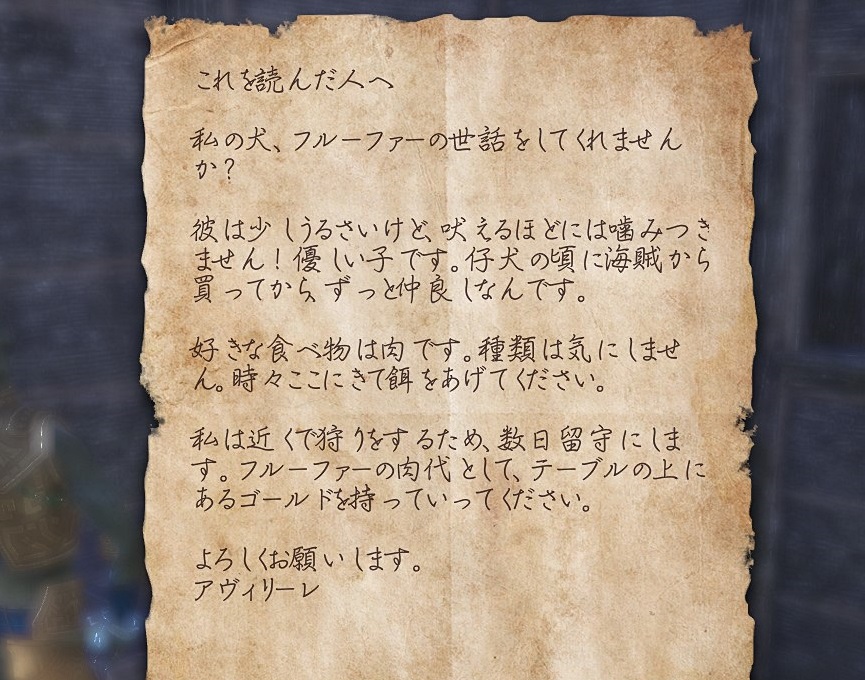 これを読んだ人へ
私の犬、フルーファーの世話をしてくれません
か?
彼は少しうるさいけど、吠えるほどには噛みつき
ません!優しい子です。仔犬の頃に海賊から
買ってから、ずっと仲良しなんです。
好きな食べ物は肉です。種類は気にしませ
ん。時々ここにきて餌をあげてください。
私は近くで狩りをするため、数日留守にしま
す。フルーファーの肉代として、テーブルの上に
あるゴールドを持っていってください。
よろしくお願いします。
アヴィリーレ